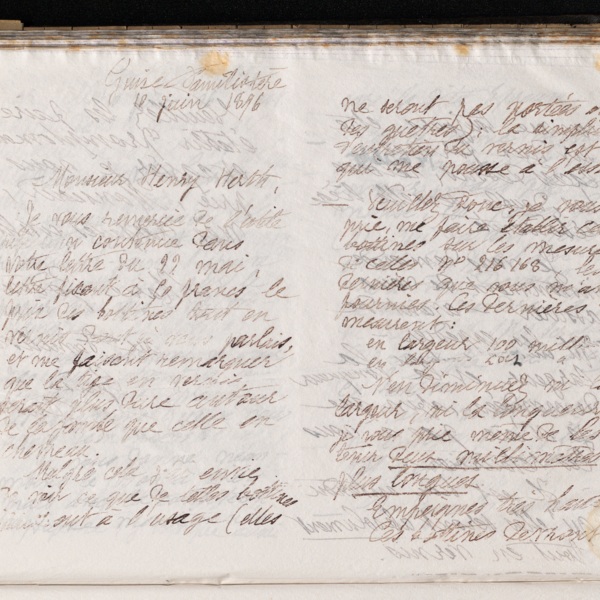 Guise Familistère
juin 1896
Monsieur Henry Herth,
Je vous remercie de l'utile
contenue dans
votre lettre du 22 mai,
lettre fixant à francs le
prix des bottines tout en
vernis dont je vous parlais,
et me faisant remarquer
que la tige en vernis
serait plus dure autour
de la jambe que celle en
chevreau.
Malgré cela j'ai envie
de voir ce que de telles bottines
sont à l'usage (elles
ne seront pas portées
des guêtres); la simplicité
d'entretien du vernis est
qui me pousse à l'ess
Veuillez donc, je vous
prie, me faire établir ces
bottines sur les mesures
de celles Nº 216168 les
dernières que vous m'a
fournies. Ces dernières
mesurent:
en largeur 100 mill
en
N'en diminuez ni la
largeur, ni la longueur
je vous prie même de les
tenir deux millimètres
plus longues
Empeignes très haut
Ces bottines devront